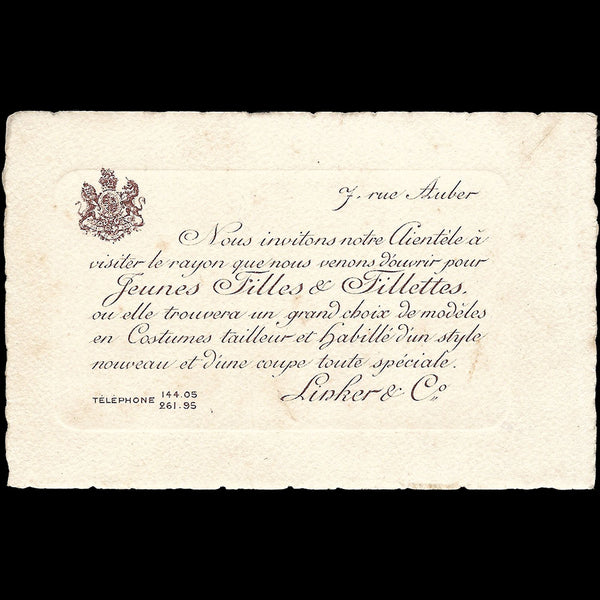 7. rue Auber
Nous invitons notre Clientèle à
visiter le rayon que nous venons d'ouvrir pour
Jeunes Filles & Fillettes,
ou elle trouvera un grand choix de modèles
en Costumes tailleur et habillé d'un style
nouveau et d'une coupe toute spéciale.
Linker & Co
TÉLÉPHONE 144.05
261.95